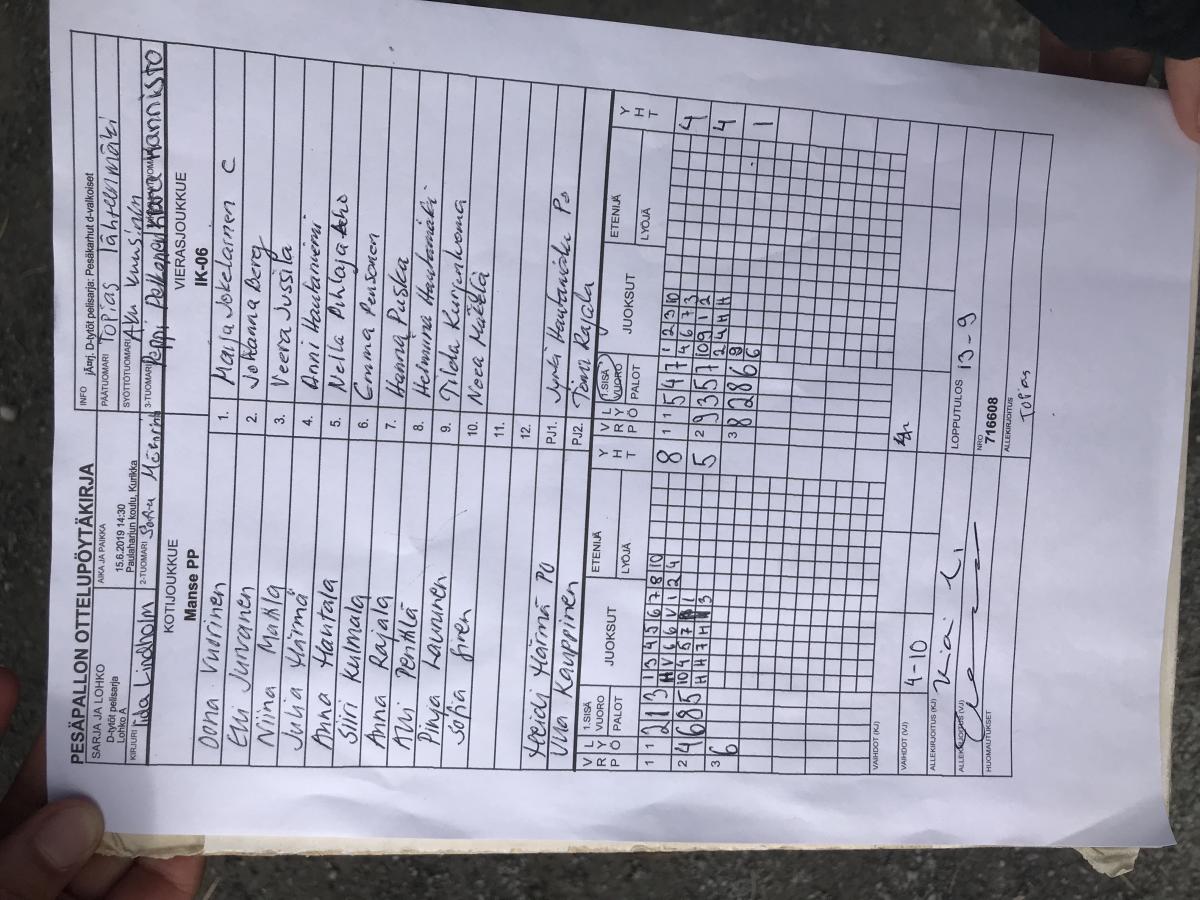 PESÄPALLON OTTELUPÖYTÄKIRJA
SARJA JA LOHKO
D-tytöt pelisarja
Lohko A
AIKA JA PAIKKA
15.6.2019 14:30
Paulaharjun koulu, Kurikka
INFO järj. D-tytöt pelisarja: Pesäkarhut d-valkoiset
PÄÄTUOMARI Topias Lähteenmäki
SYÖTTÖTUOMARI Aku Kuusinen
KIRJURI Iida Lindholm
2-TUOMARI
3-TUOMARI Peppi
KOTIJOUKKUE
Manse PP
VIERASJOUKKUE
IK-06
Oona Vuorinen 1. Marja Jokelainen C
Elli Junranen 2. Johanna Berg
Niina Mattla 3. Veera Jussila
Julia Härmä 4. Anni Hautaniemi
Anna Hautala 5. Nella Pihlaja
Siiri Kulmala 6. Emma Pensonen
Anna Rajala 7. Hanna Puska
Alli Penttlä 8. Helmiina Hautamäki
Pinja Laurunen 9. Tilda Kurjenluoma
Sofia Siren 10. Neea Mattila
11.
12.
Heidi Härmä PJ PJ1. Jyrki Hautamäki PJ
Ulla Kauppinen PJ2. Tomi Rajala
V R Ö L Y P 1.SISÄ VUORO PALOT JUOKSUT ETENIJÄ LYÖJÄ Y H T
V R Ö L Y P 1.SISÄ VUORO PALOT JUOKSUT ETENIJÄ LYÖJÄ Y H T
1 1 2 1 3 1 3 4 5 6 7 8 10 8
H V 6 6 V 1 2 4
2 4 6 8 5 10 4 5 7 1 5
H H 7 H 3
3 6
1 1 5 4 7 1 2 3 10 4
4 6 7 3
2 9 3 5 7 10 9 1 2 4
2 4 H H
3 8 2 8 6 8 1
6
VAIHDOT (KJ)
VAIHDOT (VJ) 4-10
ALLEKIRJOITUS (KJ)
LOPPUTULOS 13-9
ALLEKIRJOITUS (VJ)
NRO
716608
HUOMAUTUKSET
ALLEKIRJOITUS
Topias